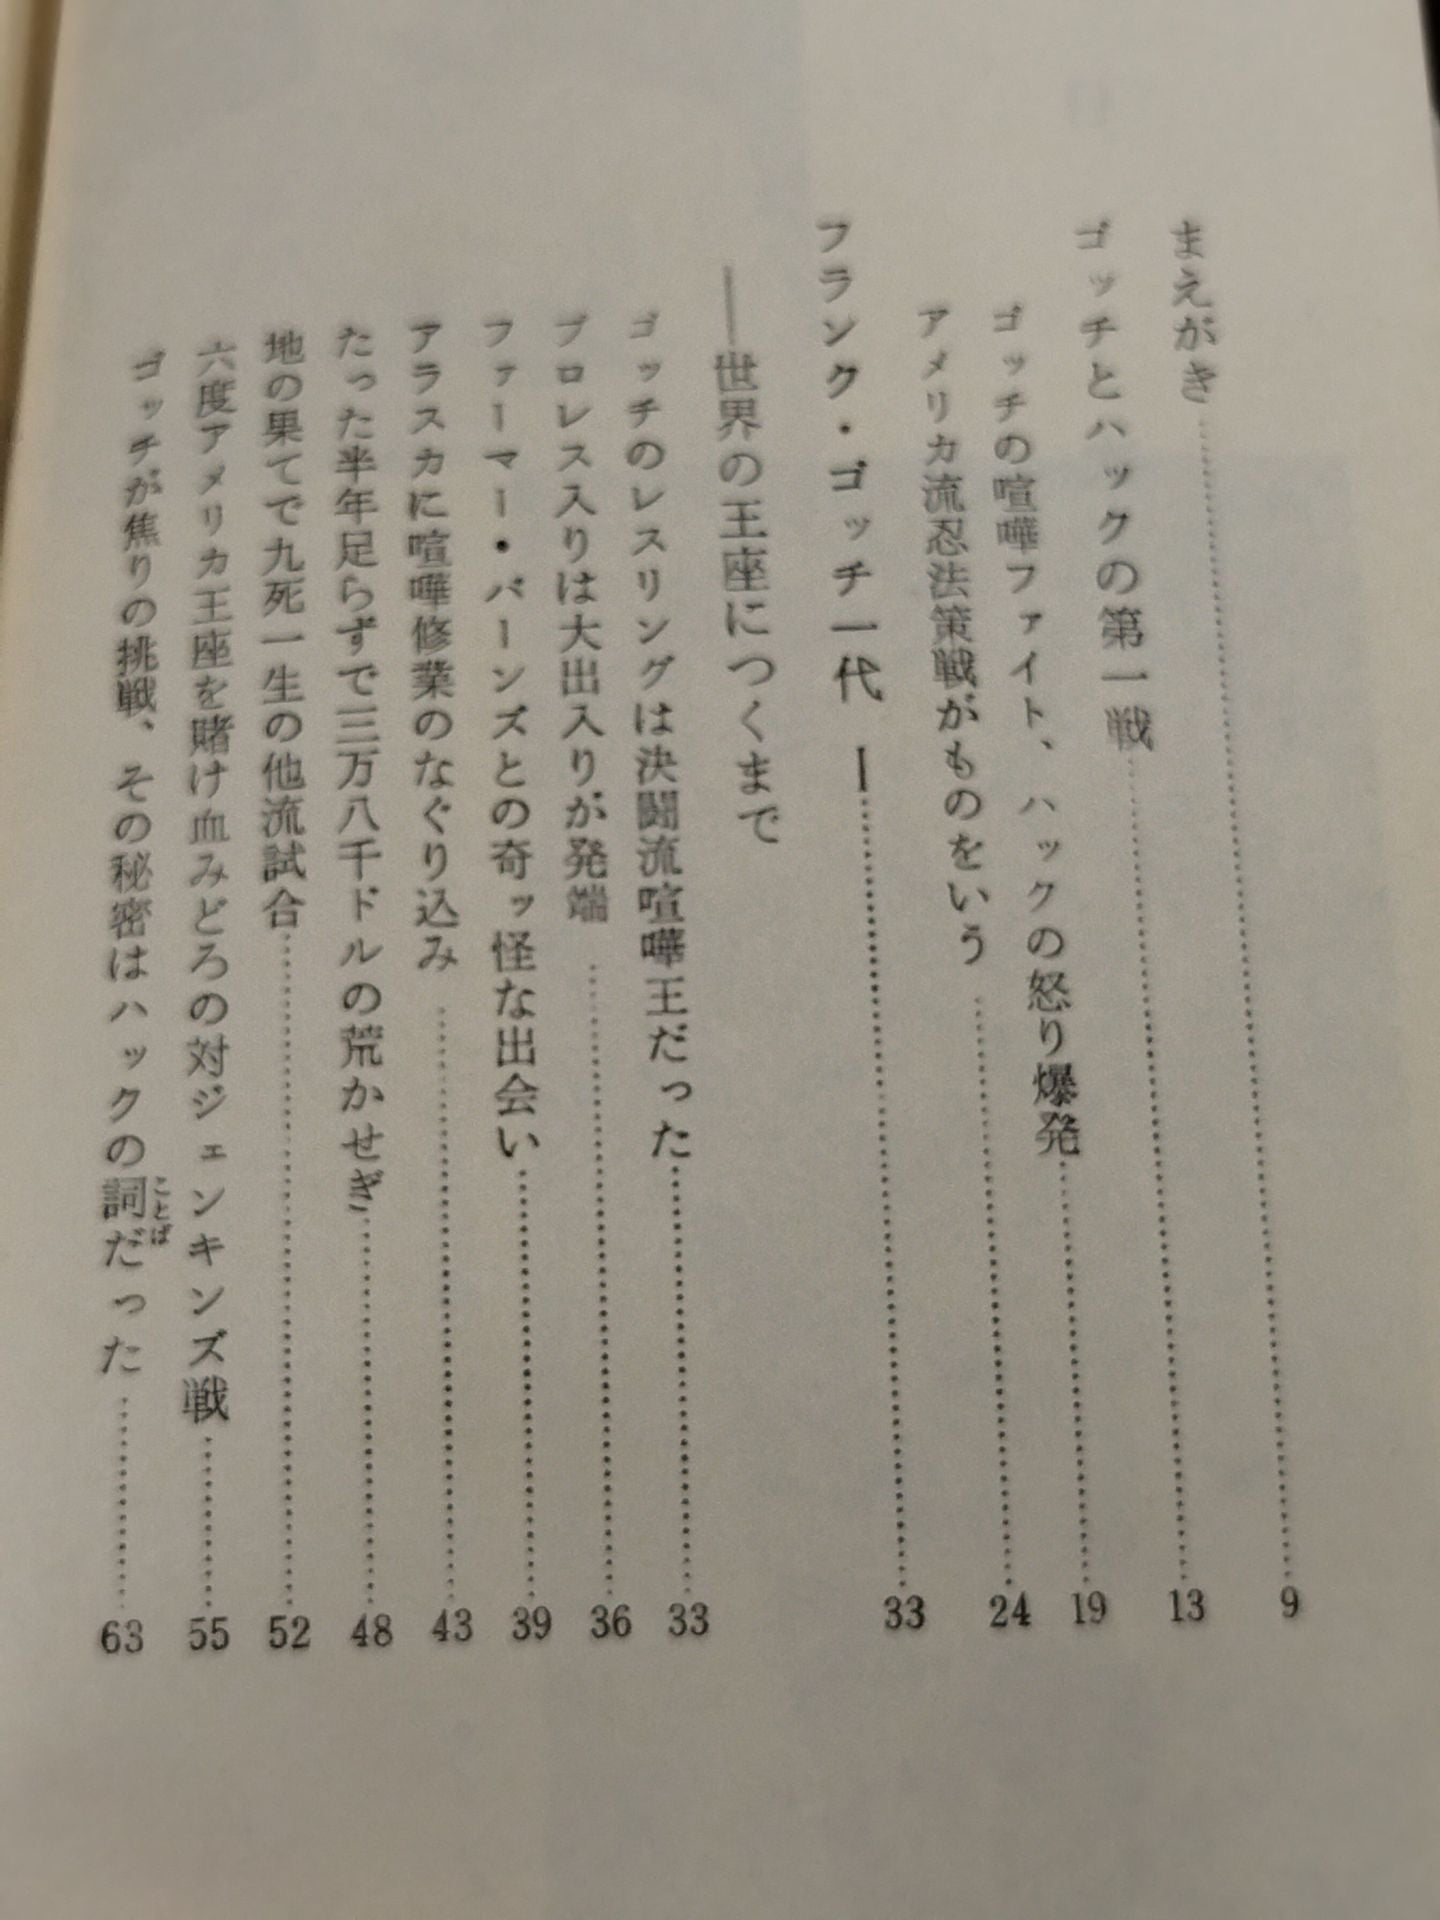 まえがき……………………9
ゴッチとハックの第一戦……………………13
ゴッチの喧嘩ファイト、ハックの怒り爆発……………………19
アメリカ流忍法策戦がものをいう……………………24
フランク・ゴッチ一代 Ⅰ……………………33
――世界の王座につくまで
ゴッチのレスリングは決闘流喧嘩王だった……………………33
プロレス入りは大出入りが発端……………………36
ファーマー・バーンズとの奇ッ怪な出会い……………………39
アラスカに喧嘩修業のなぐり込み……………………43
たった半年足らずで三万八千ドルの荒かせぎ……………………48
地の果てで九死一生の他流試合……………………52
六度アメリカ王座を賭け血みどろの対ジェンキンズ戦……………………55
ゴッチが焦りの挑戦、その秘密はハックの詞だった……………………63
ことば